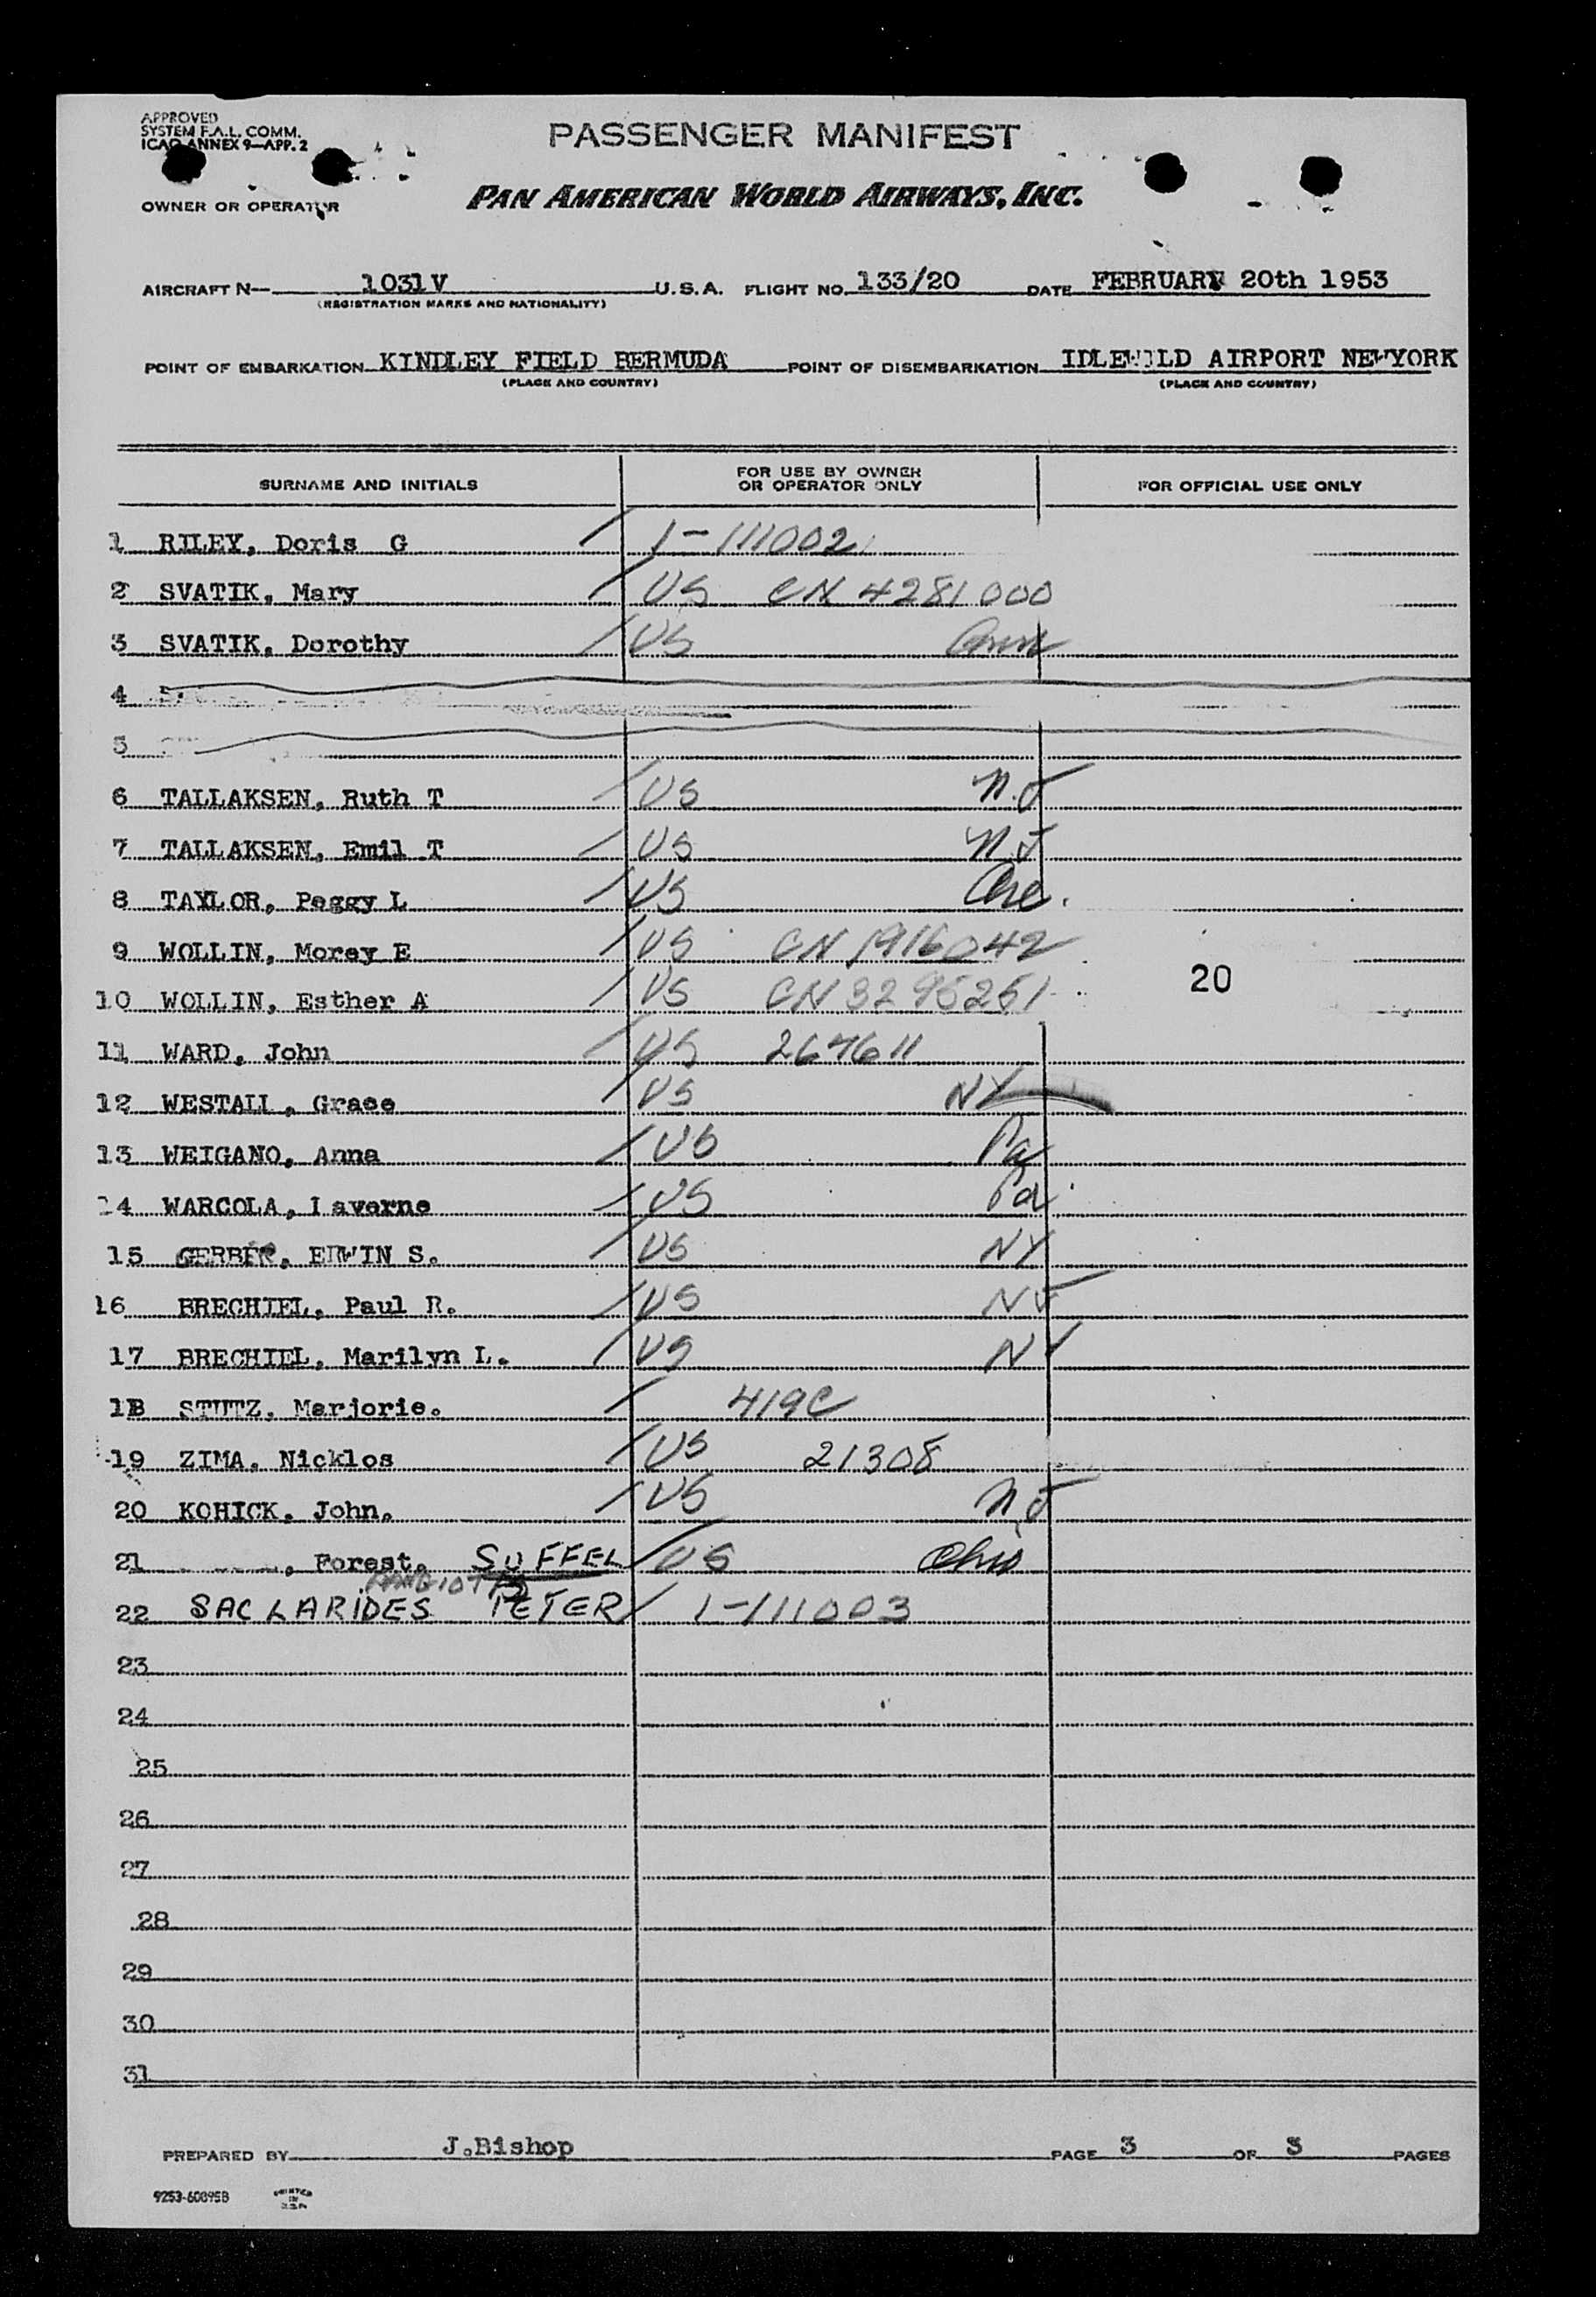 APPROVED
SYSTEM F.A.L. COMM.
ICAO ANNEX 9—APP. 2
PASSENGER MANIFEST
OWNER OR OPERATOR
PAN AMERICAN WORLD AIRWAYS, INC.
AIRCRAFT N— 1031V U.S.A. FLIGHT NO. 133/20 DATE FEBRUARY 20th 1953
(REGISTRATION MARKS AND NATIONALITY)
POINT OF EMBARKATION KINDLEY FIELD BERMUDA POINT OF DISEMBARKATION IDLEWILD AIRPORT NEWYORK
(PLACE AND COUNTRY) (PLACE AND COUNTRY)
SURNAME AND INITIALS FOR USE BY OWNER OR OPERATOR ONLY FOR OFFICIAL USE ONLY
1 RILEY, Doris G / 1-111002
2 SVATIK, Mary / US CN 4281000
3 SVATIK, Dorothy / US Conn
4
5
6 TALLAKSEN, Ruth T / US N.J
7 TALLAKSEN, Emil T / US N.J
8 TAYLOR, Peggy L / US
9 WOLLIN, Morey E / US CN 1916042
20
10 WOLLIN, Esther A / US CN 3295251
11 WARD, John / US 267611
12 WESTALL, Grace / US NY
13 WEIGANO, Anna / US Pa
14 WARCOLA, Laverne / US Pa
15 GERBER, ERWIN S. / US NY
16 BRECHIEL, Paul R. / US NJ
17 BRECHIEL, Marilyn L. / US NY
18 STUTZ, Marjorie. / 419C
19 ZIMA, Nicklos / US 21308
20 KOHICK, John. / US N.J
21 , Forest. SUFFEL / US Ohio
22 SACLARIDES PETER / 1-111003
23
24
25
26
27
28
29
30
31
PREPARED BY J.Bishop PAGE 3 OF 3 PAGES
9253-60895B PRINTED IN U.S.A.